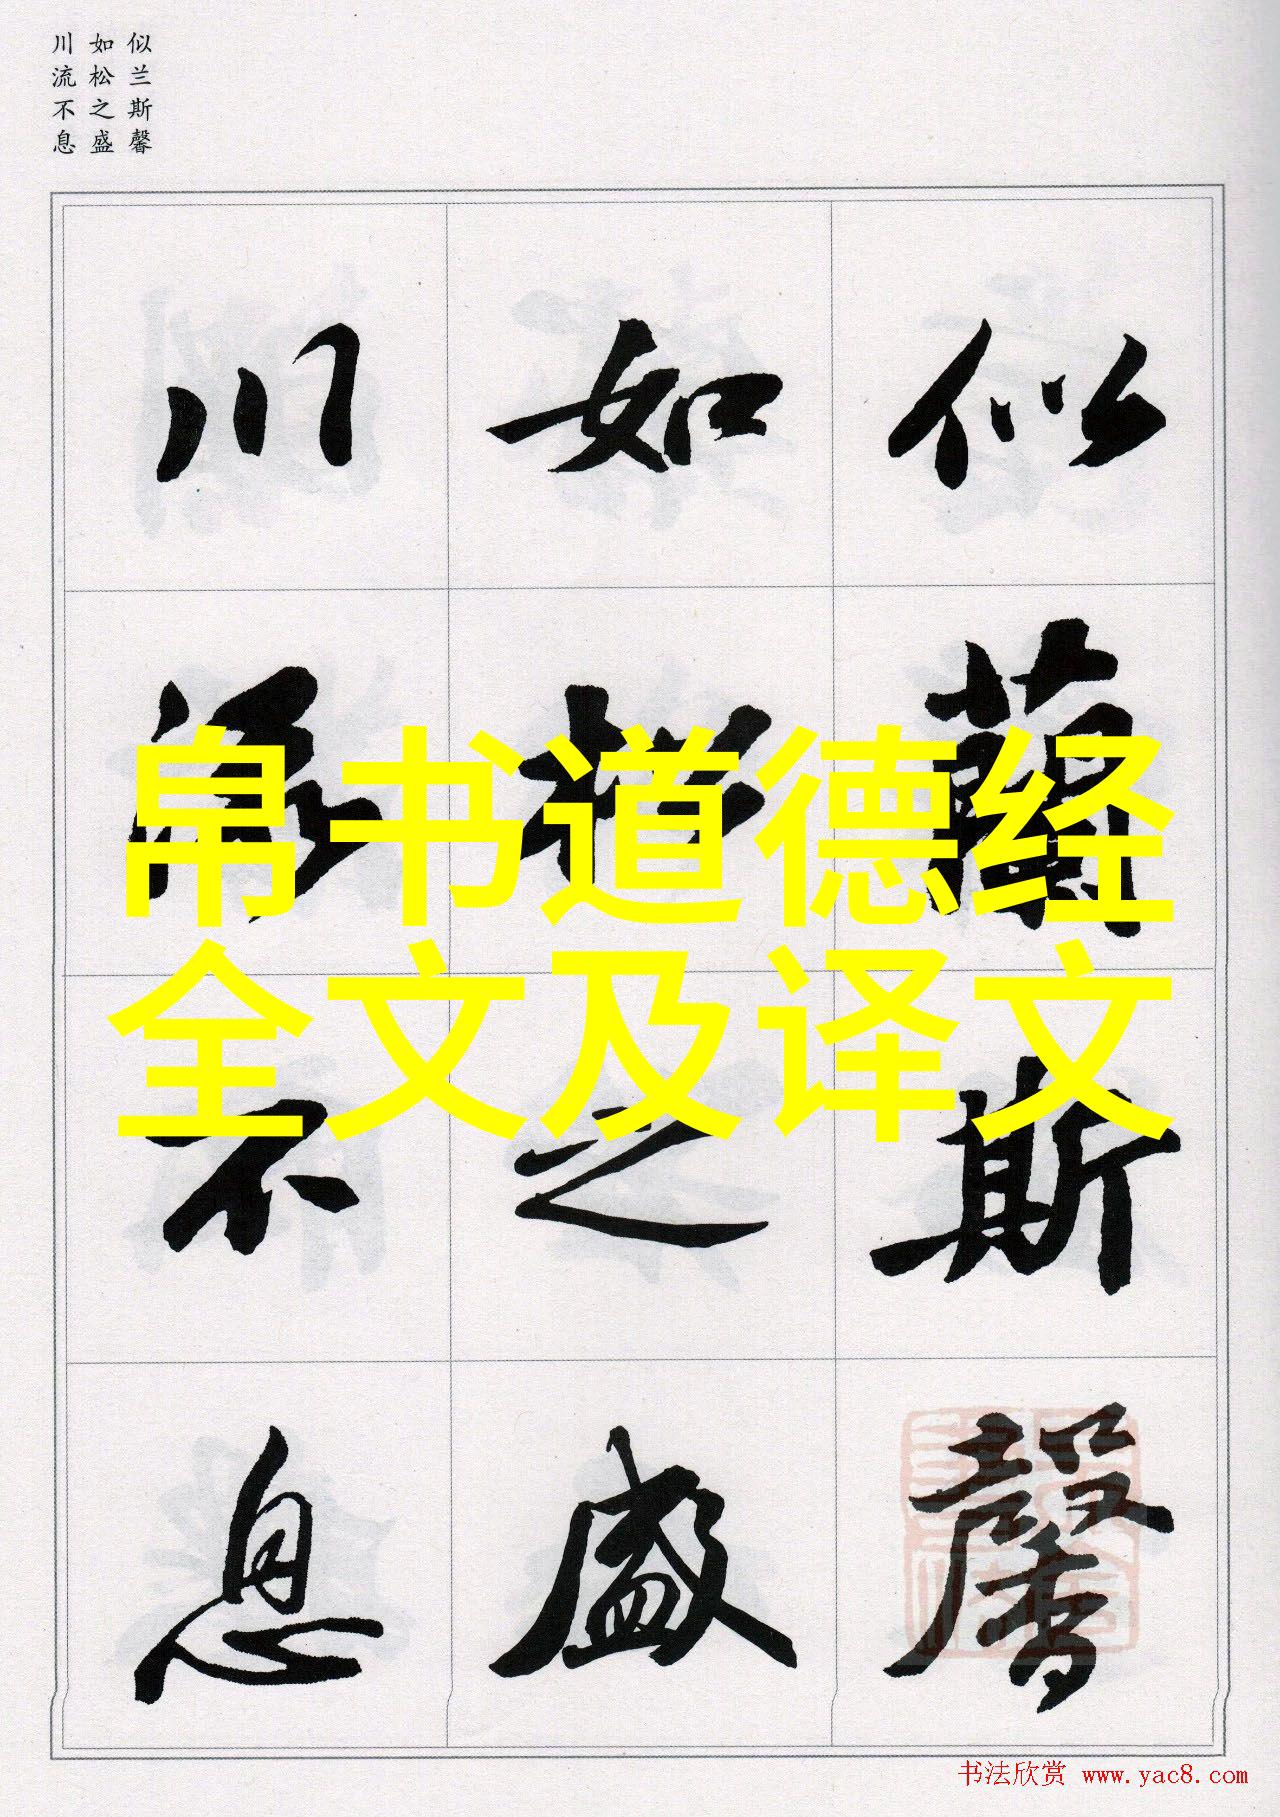 似兰斯馨
如松之盛
川流不息
似蘭斯馨
如松之盛
川流不息
帛书道德经
全文及译文
书法欣赏 www.yac8.com